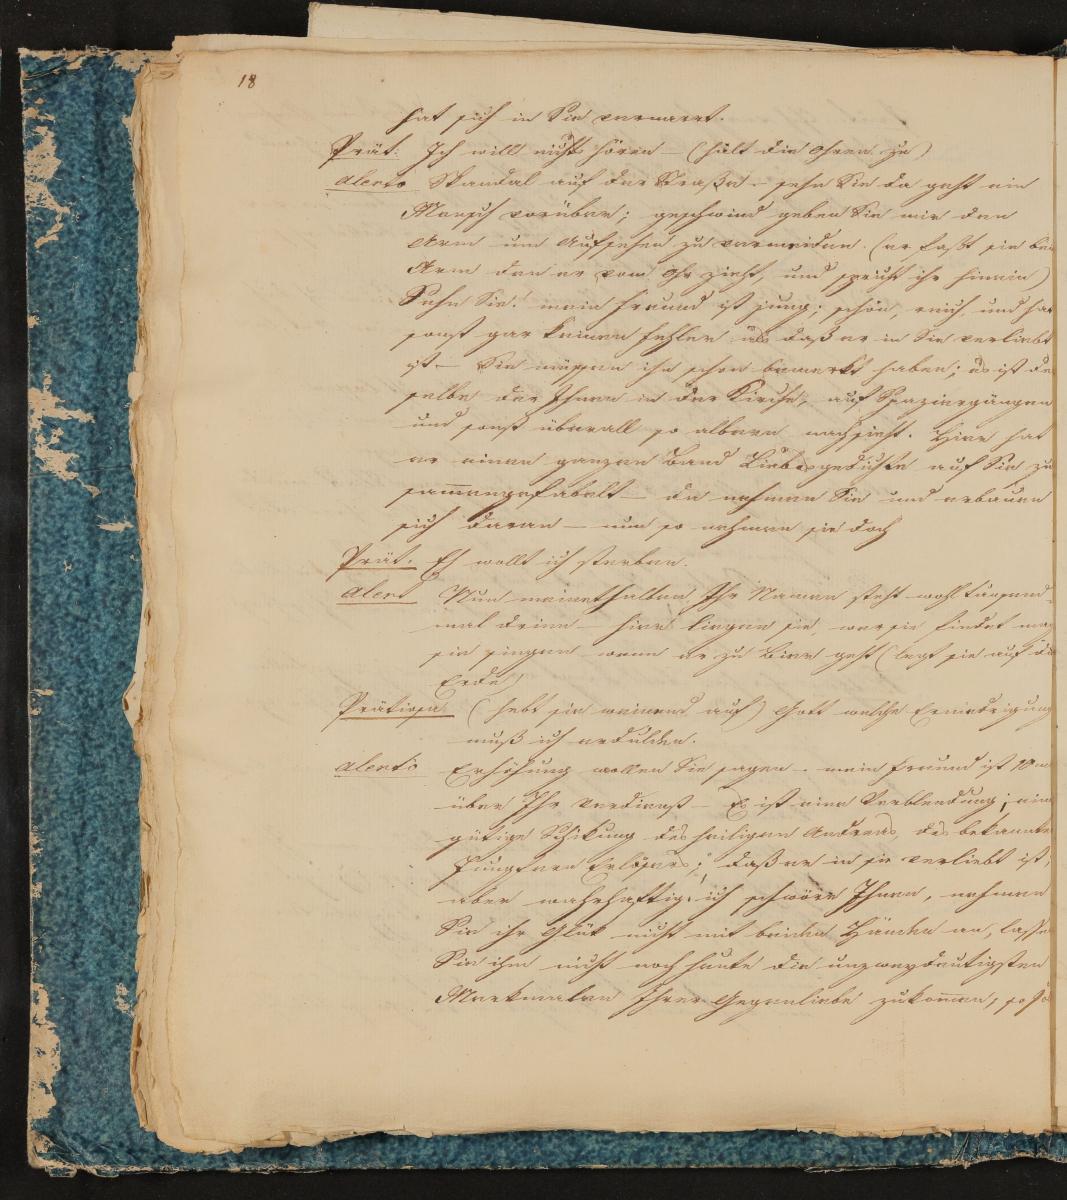 18
hat sich in Sie vernarrt.
Prät: Ich will nichts hören – (hält die Ohren zu)
Alerto Skandal auf der Straße – sehn Sie da geht ein
Mensch vorüber; geschwind geben Sie mir den
Arm um Aufsehen zu vermeiden. (er faßt sie bei
Arm den er vom Ohr zieht, und spricht ihr hinein)
Sehn Sie! mein Freund ist jung; schön, reich und hat
sonst gar keinen Fehler als daß er in Sie verliebt
ist – Sie müssen ihn schon bemerkt haben; es ist de
selbe der Ihnen in der Kirche, auf Spaziergängen
und sonst überall so albern nachsieht. Hier hat
er einen ganzen Band Liebesgedichte auf Sie zu
sammengefabelt – da nehmen Sie und erbauen
sich daran – nun so nehmen sie doch
Prät. Eh wollt ich sterben.
Alert Nun meinethalben, Ihr Namen steht wohl tausend-
mal drinn – hier liegen sie, wer sie findet mag
sie singen wenn er zu Bier geht (legt sie auf die
Erde)
Prätiosa (hebt sie weinend auf) Gott welche Erniedrigung
muß ich erdulden.
Alerto Erhöhung wollen Sie sagen – mein Freund ist
über Ihr Verdienst – Es ist eine Verblendung; eine
gütige Schikung des heiligen Andreas, des bekannten
Jungfern Erlösers; daß er in sie verliebt ist;
aber wahrhaftig, ich schwöre Ihnen, nehmen
Sie ihr Glük nicht mit beiden Händen an, lasse
Sie ihm nicht noch heute die unzweydeutigsten
Merkmalen Ihrer Gegenliebe zukommen, so